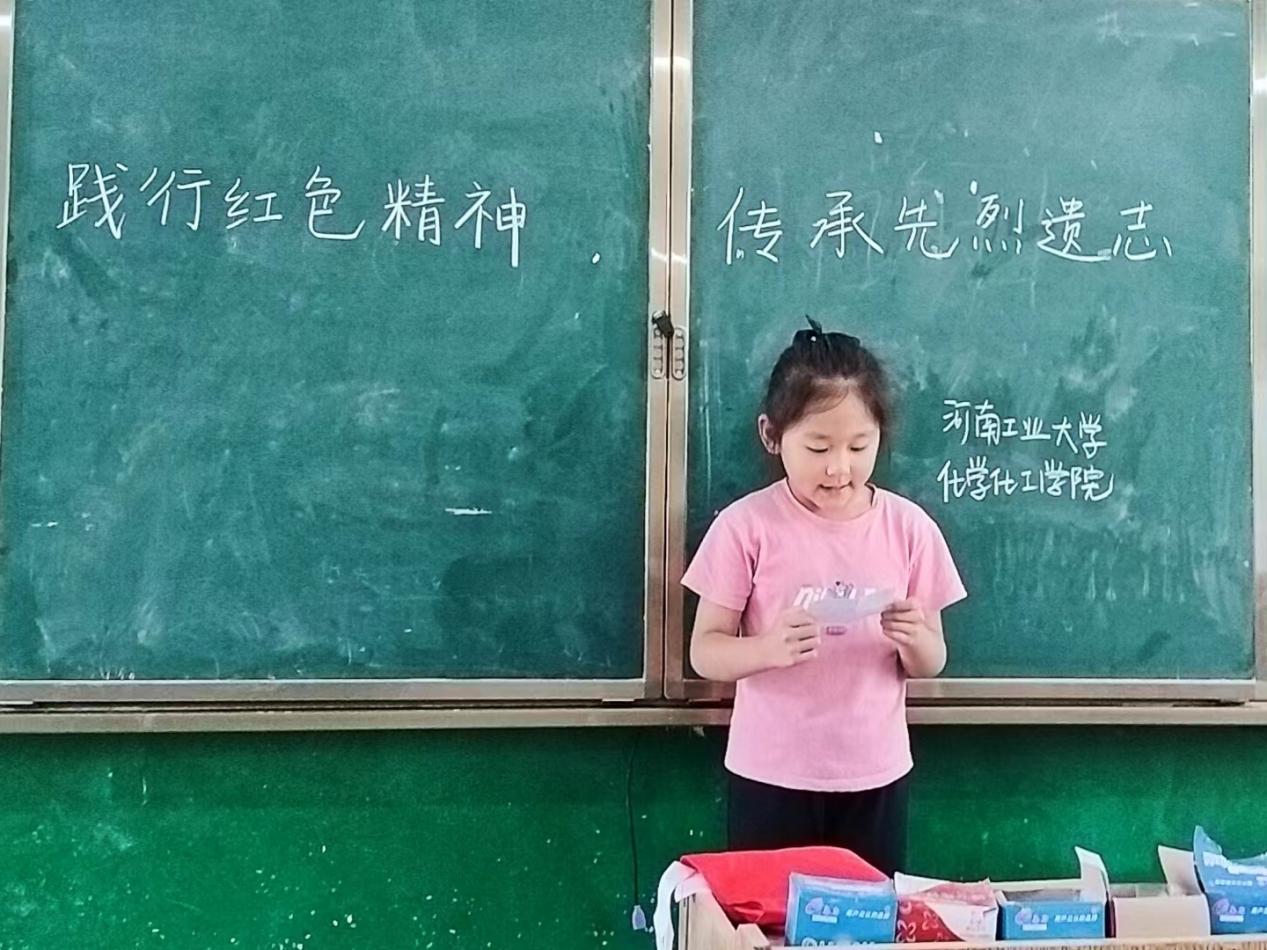 践行红色精神. 传承先烈遗志
河南工业大学
化学化工学院